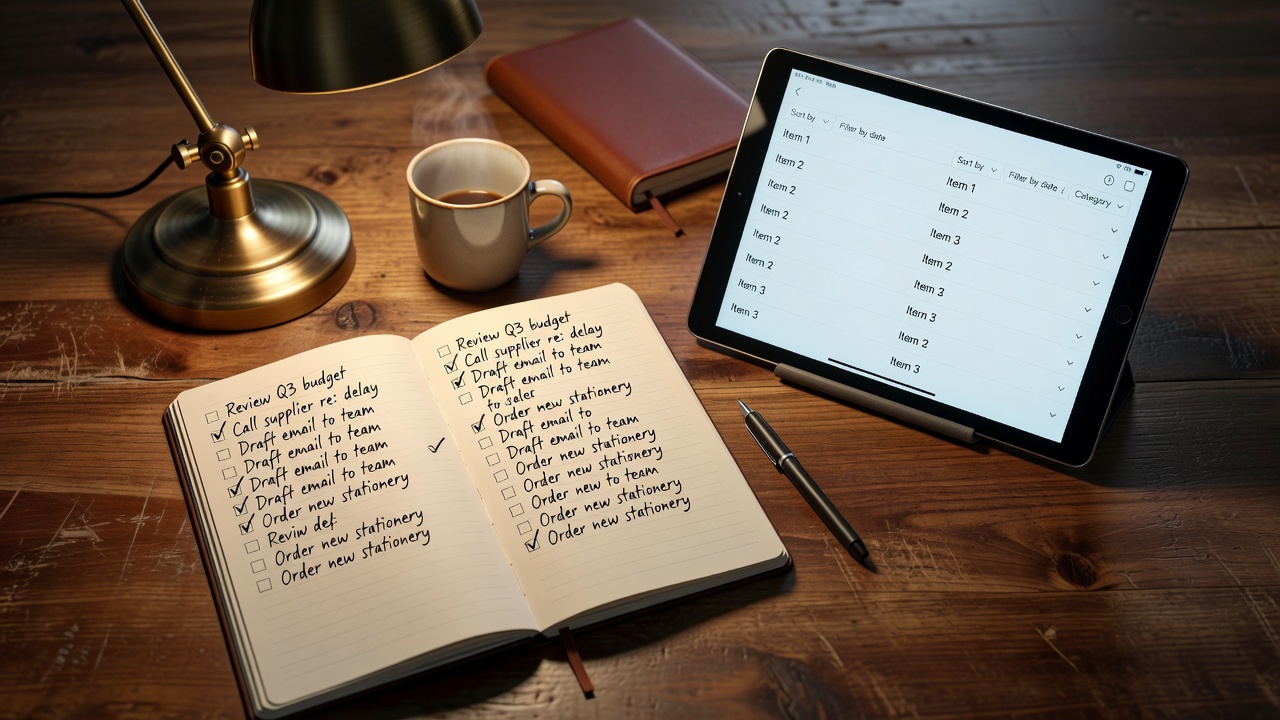 Review Q3 budget
Call supplier re: delay
Draft email to team
Draft email to team
Draft email to team
Draft email to team
Order new stationery
Reviw def
Order new stationery
Order new stationery
Review Q3 budget
Call supplier re: delay
Draft email to team
Draft email to team
to saler
Order new stationery
Draft email to
Draft email to team
Order new stationery
Order new stationery
Order new to team
Order new stationery
Order new stationery
Sort by
Filter by date
Item 1
Item 2
Item 2
Item 2
Item 2
Item 2
Item 3
Item 3
Sort by
Filter by date
Category
Item 1
Item 2
Item 3
Item 2
Item 3
Item 3
Item 2
Item 3